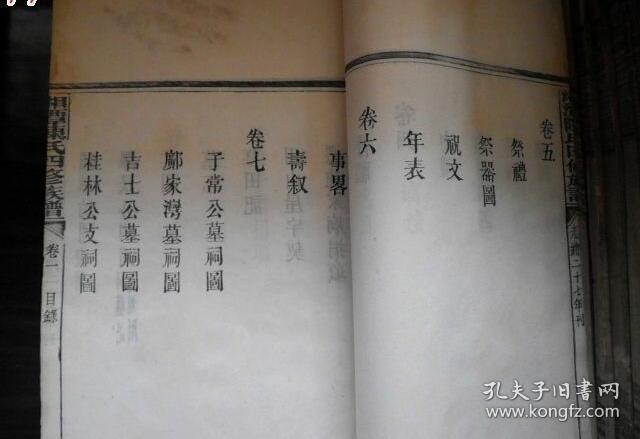 卷五
祭禮
祭器圖
祝文
年表
卷六
事畧
壽叙
卷七
子常公墓祠圖
鄺家灣墓祠圖
吉士公墓祠圖
桂林公支祠圖
湘潭陳氏四修族譜
卷一
目錄
二十七年刊
孔夫子旧书网
www.kongfz.com